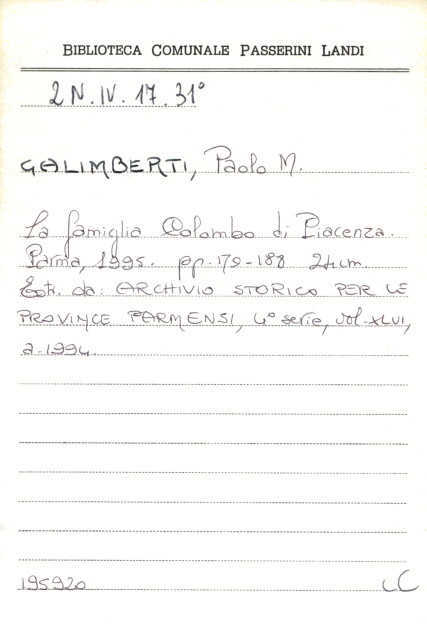 BIBLIOTECA COMUNALE PASSERINI LANDI
2 N. IV. 17. 31°
GALIMBERTI, Paolo M.
La famiglia Colombo di Piacenza.
Parma, 1995. pp. 179-188 24 cm.
Estr. da: ARCHIVIO STORICO PER LE
PROVINCE PARMENSI, 4° serie, vol. XLVI,
a. 1994.
195920